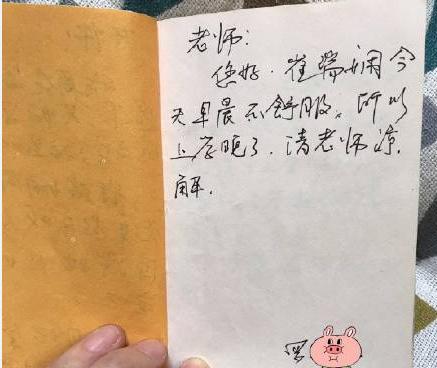 老师:
您好.崔瑞娴今
天早晨不舒服,所以
上学晚了.请老师谅
解.